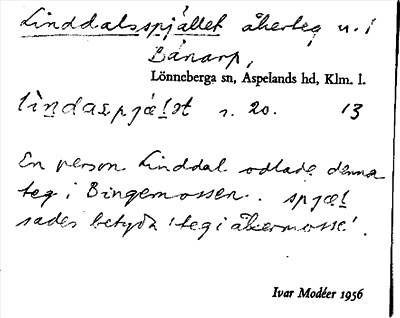 Linddalsspjället åkerteg n. i
Bånarp,
Lönneberga sn, Aspelands hd, Klm. l.
lìndaspjæ̀lət r. 20. 13
En person Linddal odlade denna
teg i Bingemossen. spjæl
sades betyda 'teg i åkermosse'.
Ivar Modéer 1956